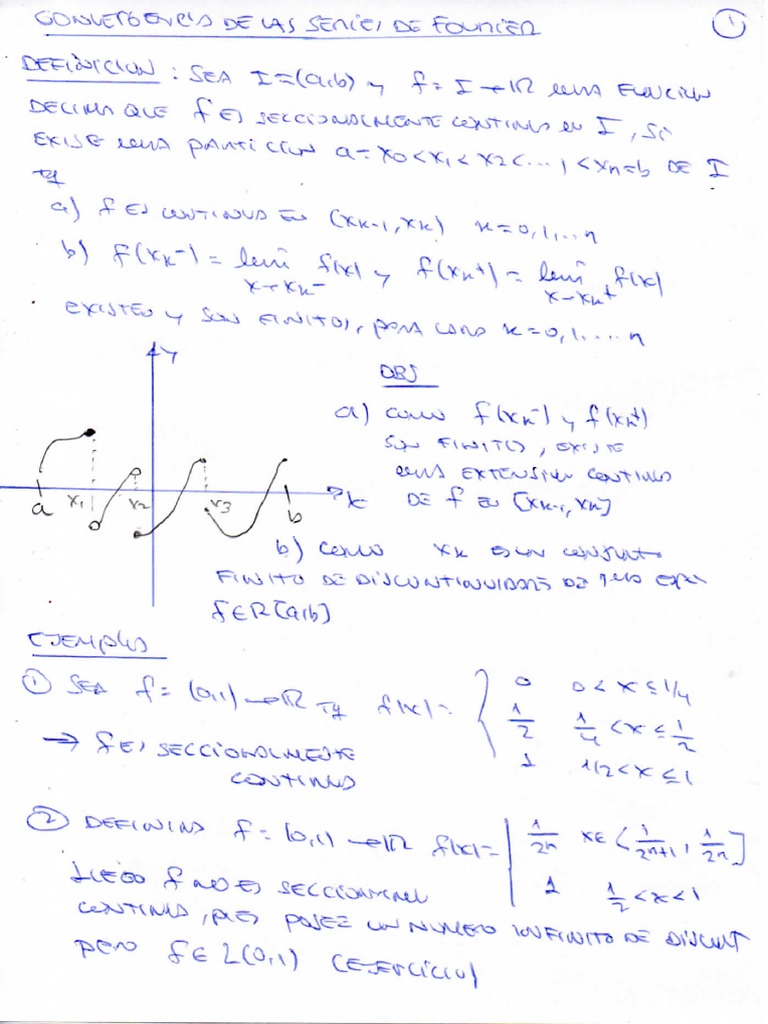 CONVERGENCIA DE LAS SERIES DE FOURIER
①
DEFINICION : SEA I=(a,b) y f: I → ℝ una FUNCION
DECIMOS QUE f ES SECCIONALMENTE CONTINUA EN I, SI
EXISTE una PARTICION a=x0<x1<x2<...,<xn=b DE I
tq
a) f ES CONTINUA EN (xk-1,xk) k=0,1,...n
b) f(xk-) = lim f(x) y f(xk+) = lim f(x)
x→xk- x→xk+
EXISTEN y SON FINITOS, PARA CADA k=0,1,...n
y
OBS
a) COMO f(xk-) y f(xk+)
SON FINITOS, EXISTE
UNA EXTENSION CONTINUA
DE f EN [xk-1,xk]
a x1 x2 x3 b x
b) COMO xk ES UN CONJUNTO
FINITO DE DISCONTINUIDADES DE
f∈R[a,b]
EJEMPLOS
① SEA f: (0,1) → ℝ tq f(x) = { 0 0<x≤1/4
1/2 1/4<x≤1/2
1 1/2<x≤1
→ f ES SECCIONALMENTE
CONTINUA
② DEFINIMOS f: (0,1) → ℝ f(x) = | 1/2n x∈<1/2n+1, 1/2n]
1 1/2<x<1
LUEGO f NO ES SECCIONALM
CONTINUA, PUES POSEE UN NUMERO INFINITO DE DISCONT
PERO f∈L(0,1) (EJERCICIO)